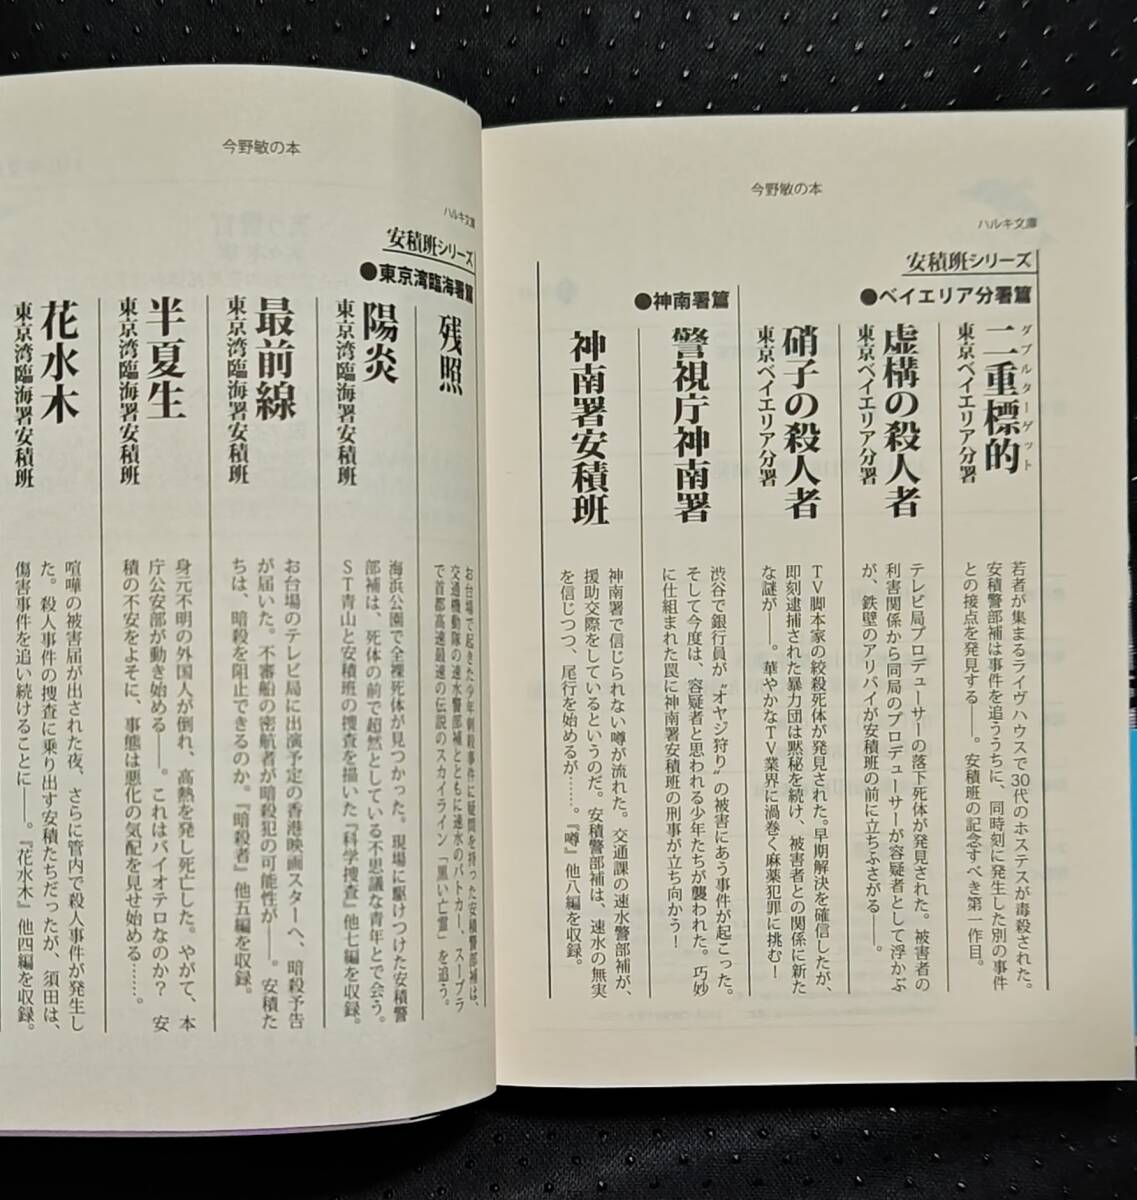 今野敏の本
ハルキ文庫
安積班シリーズ
●ベイエリア分署篇
二重標的
ダブルターゲット
東京ベイエリア分署
若者が集まるライヴハウスで30代のホステスが毒殺された。
安積警部補は事件を追ううちに、同時刻に発生した別の事件
との接点を発見する――。安積班の記念すべき第一作目。
虚構の殺人者
東京ベイエリア分署
テレビ局プロデューサーの落下死体が発見された。被害者の
利害関係から同局のプロデューサーが容疑者として浮かぶ
が、鉄壁のアリバイが安積班の前に立ちふさがる――。
硝子の殺人者
東京ベイエリア分署
TV脚本家の絞殺死体が発見された。早期解決を確信したが、
即刻逮捕された暴力団は黙秘を続け、被害者との関係に新た
な謎が――。華やかなTV業界に渦巻く麻薬犯罪に挑む!
●神南署篇
警視庁神南署
渋谷で銀行員が〝オヤジ狩り〟の被害にあう事件が起こった。
そして今度は、容疑者と思われる少年たちが襲われた。巧妙
に仕組まれた罠に神南署安積班の刑事が立ち向かう!
神南署安積班
神南署で信じられない噂が流れた。交通課の速水警部補が、
援助交際をしているというのだ。安積警部補は、速水の無実
を信じつつ、尾行を始めるが……。『噂』他八編を収録。
今野敏の本
ハルキ文庫
安積班シリーズ
●東京湾臨海署篇
残照
お台場で起きた少年刺殺事件に疑問を持った安積警部補は、
交通機動隊の速水警部補とともに速水のパトカー、スープラ
で首都高速最速の伝説のスカイライン「黒い亡霊」を追う。
陽炎
東京湾臨海署安積班
海浜公園で全裸死体が見つかった。現場に駆けつけた安積警
部補は、死体の前で超然としている不思議な青年とで会う。
ST青山と安積班の捜査を描いた『科学捜査』他七編を収録。
最前線
東京湾臨海署安積班
お台場のテレビ局に出演予定の香港映画スターへ、暗殺予告
が届いた。不審船の密航者が暗殺犯の可能性が――。安積た
ちは、暗殺を阻止できるのか。『暗殺者』他五編を収録。
半夏生
東京湾臨海署安積班
身元不明の外国人が倒れ、高熱を発し死亡した。やがて、本
庁公安部が動き始める――。これはバイオテロなのか? 安
積の不安をよそに、事態は悪化の気配を見せ始める……。
花水木
東京湾臨海署安積班
喧嘩の被害届が出された夜、さらに管内で殺人事件が発生し
た。殺人事件の捜査に乗り出す安積たちだったが、須田は、
傷害事件を追い続けることに――。『花水木』他四編を収録。